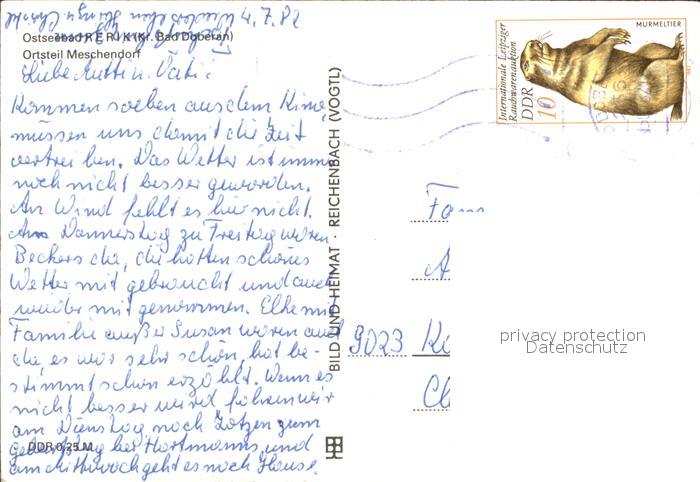 4.7.82
Ostseebad R E R I K (Kr. Bad Doberan)
Ortsteil Meschendorf
Liebe Mutti u. Vati!
Kommen soeben aus dem Kino,
müssen uns damit die Zeit
vertreiben. Das Wetter ist immer
noch nicht besser geworden.
An Wind fehlt es hier nicht.
Am Donnerstag zu Freitag waren
Beckers da, die hatten schönes
Wetter mit gebraucht und auch
wieder mit genommen. Elke mit
Familie außer Susan waren auch
da, es war sehr schön, hat be-
stimmt schon erzählt. Wenn es
nicht besser wird fahren wir
am Dienstag nach Zotzen zum
Geburtstag bei Hartmanns und
am Mittwoch geht es nach Hause.
DDR 0,25 M
BILD UND HEIMAT REICHENBACH (VOGTL)
Internationale Leipziger
Rauchwarenauktion
DDR
10
MURMELTIER
Fam
9023 K
privacy protection
Datenschutz